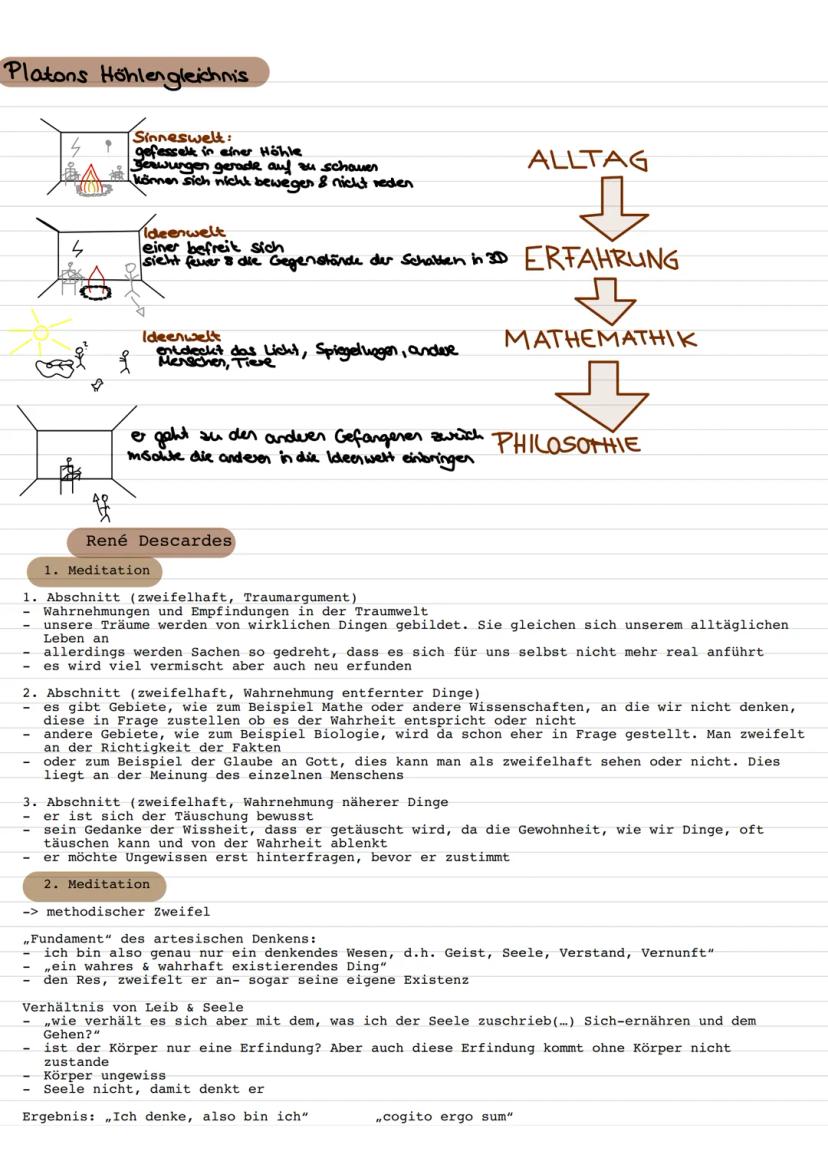 Platons Höhlengleichnis
Sinneswelt:
gefesselt in einer Höhle
gezwungen gerade auf zu schauen
können sich nicht bewegen & nicht reden
ALLTAG
Ideenwelt
einer befreit sich
sieht feuer & die Gegenstände der Schatten in 3D
ERFAHRUNG
Ideenwelt
entdeckt das Licht, Spiegelungen, andere
Menschen, Tiere
MATHEMATHIK
er geht zu den anderen Gefangenen zurück
möchte die anderen in die Ideenwelt einbringen
PHILOSOPHIE
René Descardes
1. Meditation
1. Abschnitt (zweifelhaft, Traumargument)
- Wahrnehmungen und Empfindungen in der Traumwelt
- unsere Träume werden von wirklichen Dingen gebildet. Sie gleichen sich unserem alltäglichen
Leben an
- allerdings werden Sachen so gedreht, dass es sich für uns selbst nicht mehr real anführt
- es wird viel vermischt aber auch neu erfunden
2. Abschnitt (zweifelhaft, Wahrnehmung entfernter Dinge)
- es gibt Gebiete, wie zum Beispiel Mathe oder andere Wissenschaften, an die wir nicht denken,
diese in Frage zustellen ob es der Wahrheit entspricht oder nicht
- andere Gebiete, wie zum Beispiel Biologie, wird da schon eher in Frage gestellt. Man zweifelt
an der Richtigkeit der Fakten
- oder zum Beispiel der Glaube an Gott, dies kann man als zweifelhaft sehen oder nicht. Dies
liegt an der Meinung des einzelnen Menschens
3. Abschnitt (zweifelhaft, Wahrnehmung näherer Dinge
- er ist sich der Täuschung bewusst
- sein Gedanke der Wissheit, dass er getäuscht wird, da die Gewohnheit, wie wir Dinge, oft
täuschen kann und von der Wahrheit ablenkt
- er möchte Ungewissen erst hinterfragen, bevor er zustimmt
2. Meditation
-> methodischer Zweifel
„Fundament“ des artesischen Denkens:
- ich bin also genau nur ein denkendes Wesen, d.h. Geist, Seele, Verstand, Vernunft“
- „ein wahres & wahrhaft existierendes Ding“
- den Res, zweifelt er an- sogar seine eigene Existenz
Verhältnis von Leib & Seele
- „wie verhält es sich aber mit dem, was ich der Seele zuschrieb(…) Sich-ernähren und dem
Gehen?“
- ist der Körper nur eine Erfindung? Aber auch diese Erfindung kommt ohne Körper nicht
zustande
- Körper ungewiss
- Seele nicht, damit denkt er
Ergebnis: „Ich denke, also bin ich“ „cogito ergo sum“